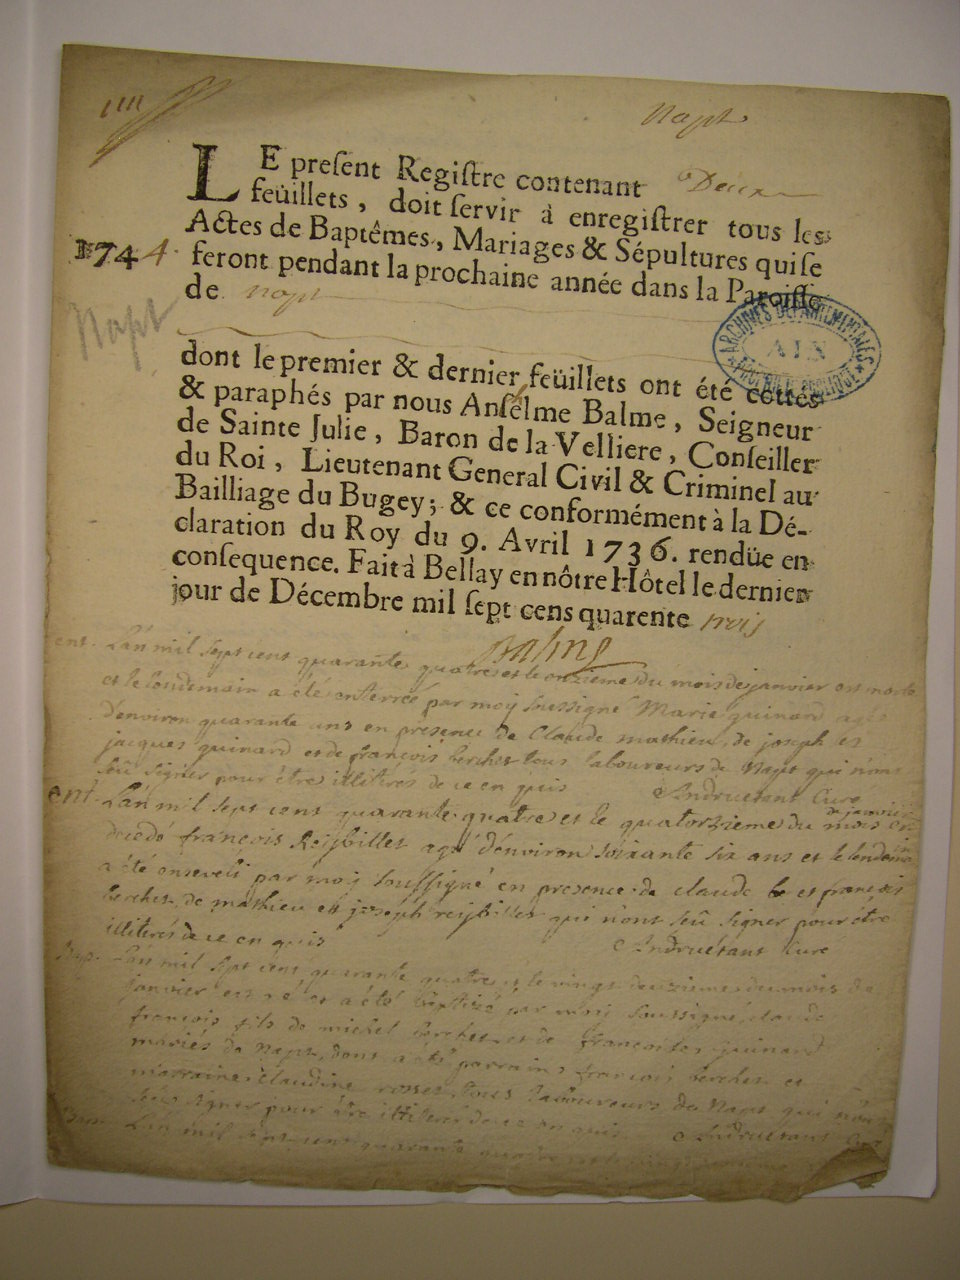 1111
Napt
LE preſent Regiſtre contenant Deux
feüillets, doit ſervir à enregiſtrer tous les
Actes de Baptêmes, Mariages & Sépultures qui ſe
1744. feront pendant la prochaine année dans la Paroiſſe
de napt
Napt
ARCHIVES DEPARTEMENTALES
AIN
dont le premier & dernier feüillets ont été cottés
& paraphés par nous Anſelme Balme, Seigneur
de Sainte Julie, Baron de la Velliere, Conſeiller
du Roi, Lieutenant General Civil & Criminel au
Bailliage du Bugey; & ce conformément à la Dé-
claration du Roy du 9. Avril 1736. rendüe en
conſequence. Fait à Bellay en nôtre Hôtel le dernier
jour de Décembre mil ſept cens quarente trois
Balme
ent. L'an mil sept cent quarante quatre et le onzieme du mois de janvier est morte
et le lendemain a été enterrée par moy soussigné Marie guinard agée
d'environ quarante ans en presence de Claude mathieu, de joseph et
jacques guinard et de françois berchet tous laboureurs de Napt qui n'ont
seû signer pour être illiterés de ce en quis Andruetant Curé
ent. L'an mil sept cent quarante quatre et le quatorzieme du mois de janvier est
decedé françois Reijbillet agé d'environ soixante six ans et le lendemain
a été enseveli par moy soussigné en presence de claude et françois
berchet, de mathieu et joseph reijbillet qui n'ont seû signer pour être
illiterés de ce en quis Andruetant Curé
Bap. L'an mil sept cent quarante quatre et le vingt deuzieme du mois de
janvier est né et a été baptizé par moy soussigné claude
françois fils de michel berchet et de françoise guinard
mariés de Napt, dont a été parrain françois berchet et
marraine Claudine rosset tous laboureurs de Napt qui n'ont
seû signer pour être illiterés de ce en quis Andruetant Curé
L'an mil sept cent quarante quatre et le vingt